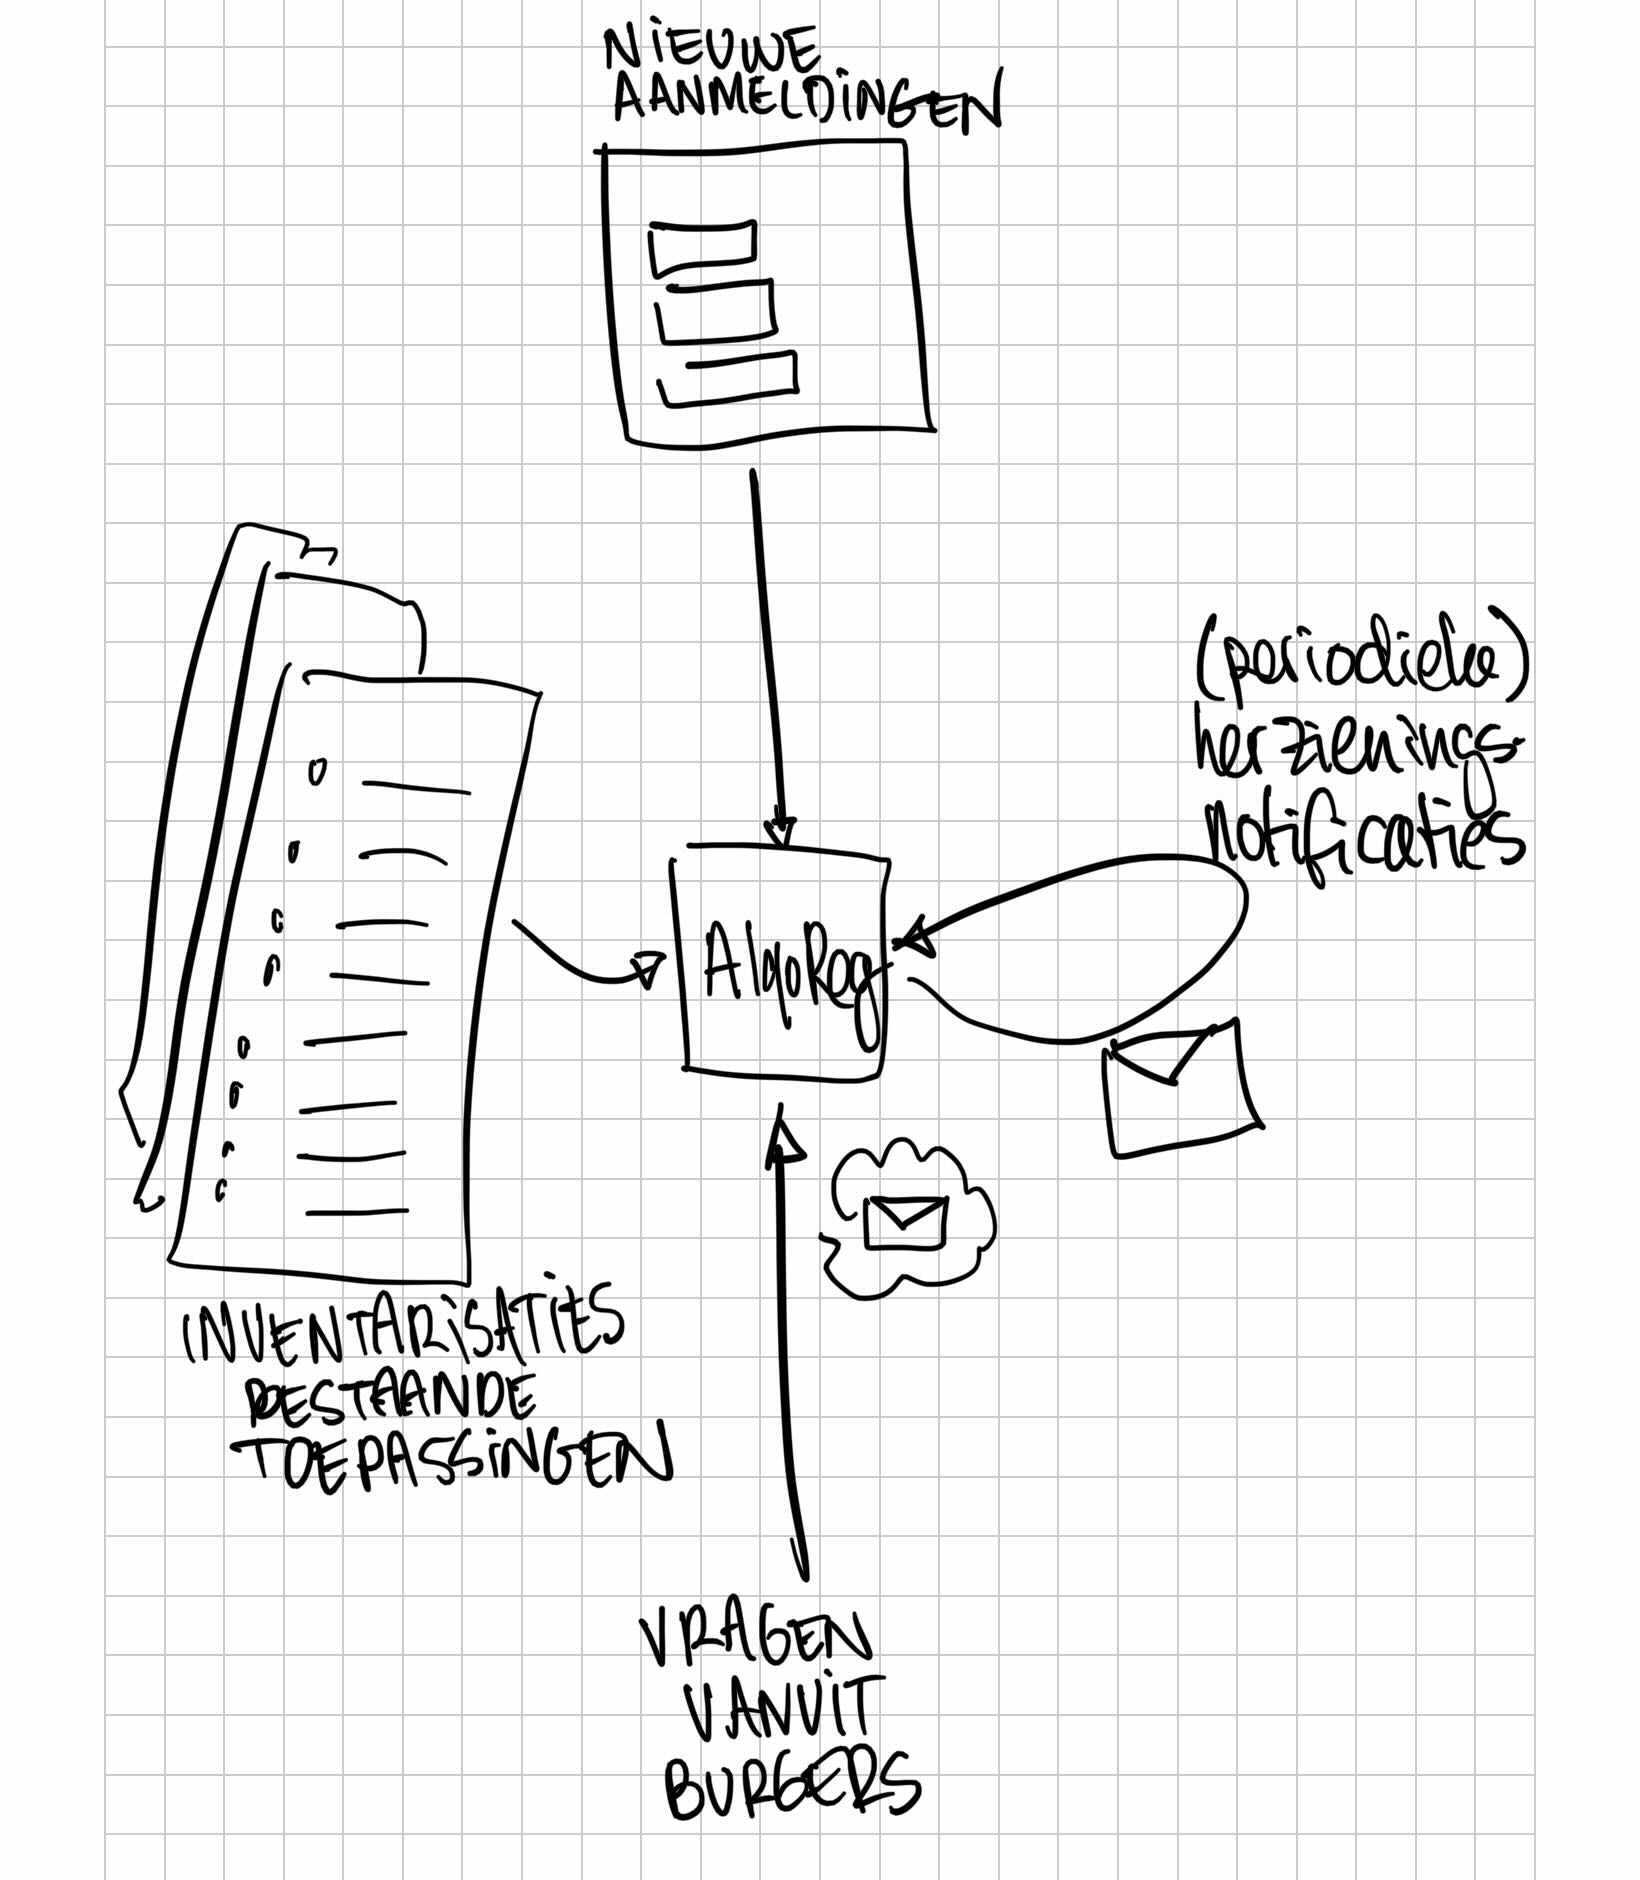 NIEUWE
AANMELDINGEN
(periodieke)
herzienings-
notificaties
AlgoReg
INVENTARISATIES
BESTAANDE
TOEPASSINGEN
VRAGEN
VANUIT
BURGERS